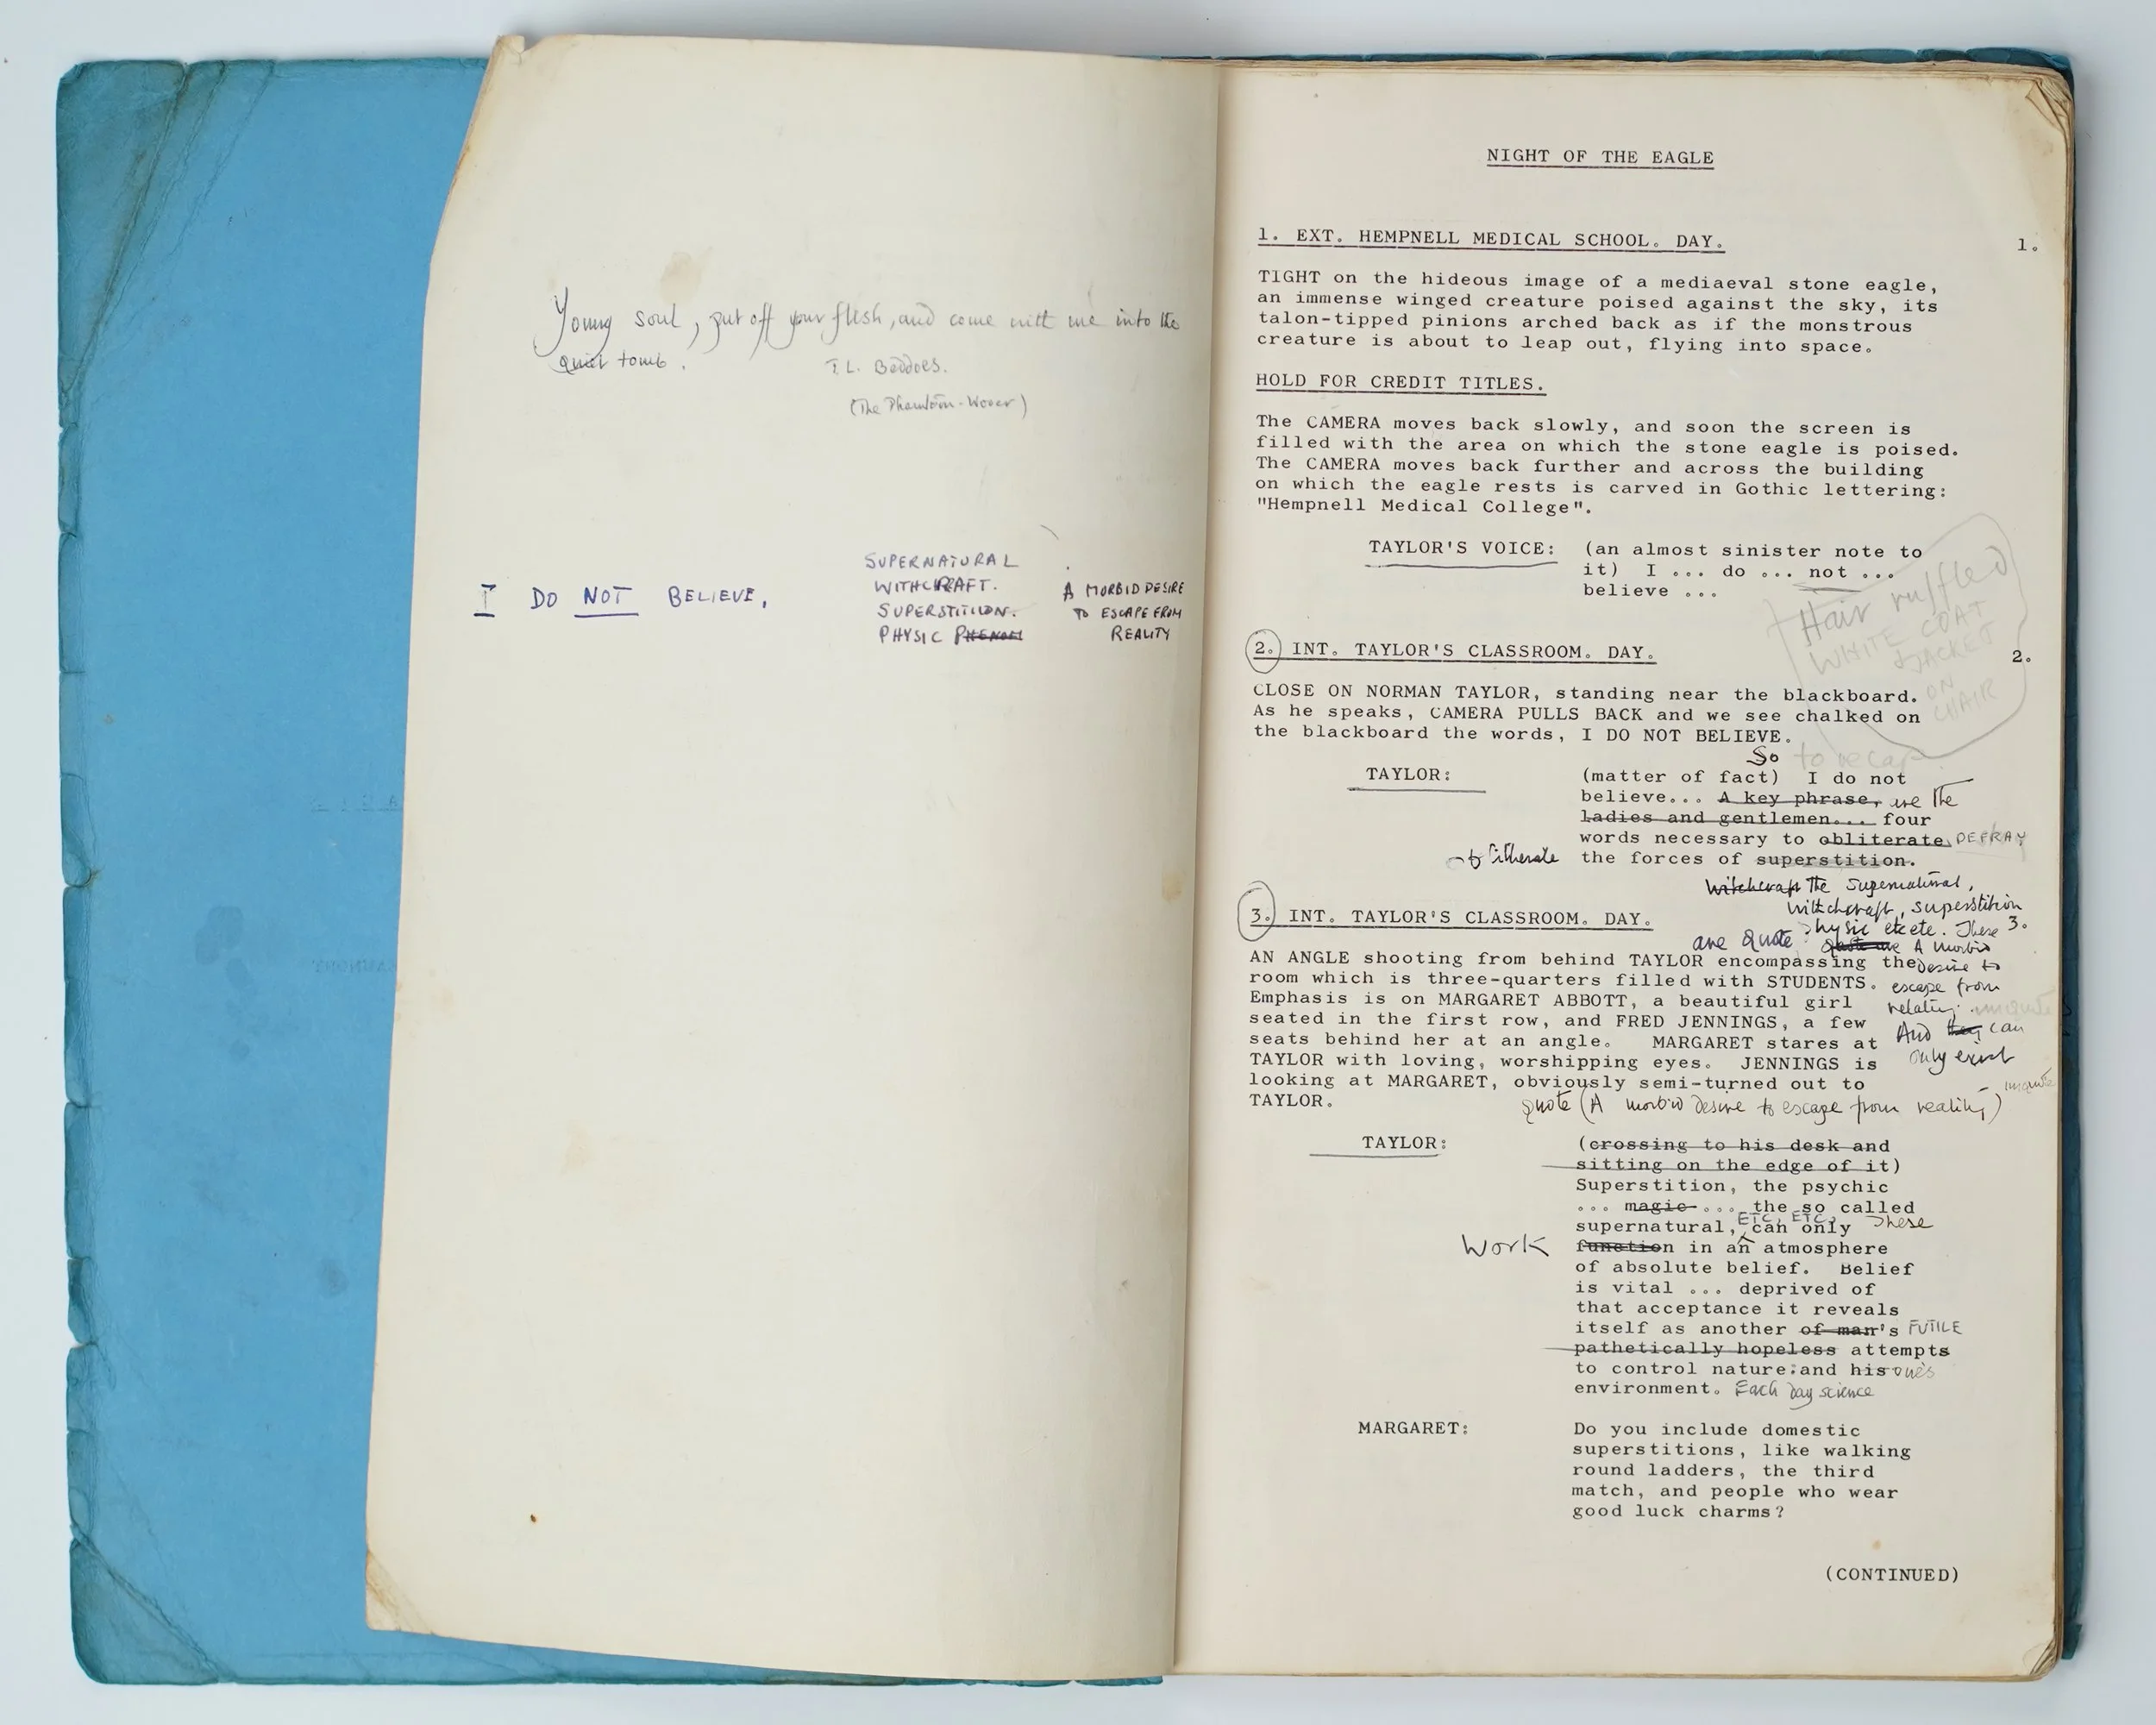 Young soul, put off your flesh, and come with me into the
quiet tomb.
T.L. Beddoes.
(The Phantom-Wooer)
I DO NOT BELIEVE,
SUPERNATURAL
WITHCRAFT.
SUPERSTITION.
PHYSIC PHENOM
A MORBID DESIRE
TO ESCAPE FROM
REALITY
NIGHT OF THE EAGLE
1. EXT. HEMPNELL MEDICAL SCHOOL. DAY.
1.
TIGHT on the hideous image of a mediaeval stone eagle,
an immense winged creature poised against the sky, its
talon-tipped pinions arched back as if the monstrous
creature is about to leap out, flying into space.
HOLD FOR CREDIT TITLES.
The CAMERA moves back slowly, and soon the screen is
filled with the area on which the stone eagle is poised.
The CAMERA moves back further and across the building
on which the eagle rests is carved in Gothic lettering:
"Hempnell Medical College".
TAYLOR'S VOICE: (an almost sinister note to
it) I ... do ... not ...
believe ...
Hair ruffled
WHITE COAT
JACKET
ON
CHAIR
2. INT. TAYLOR'S CLASSROOM. DAY.
2.
CLOSE ON NORMAN TAYLOR, standing near the blackboard.
As he speaks, CAMERA PULLS BACK and we see chalked on
the blackboard the words, I DO NOT BELIEVE.
So to recap
TAYLOR: (matter of fact) I do not
believe... A key phrase, are the
ladies and gentlemen... four
words necessary to obliterate DEFRAY
the forces of superstition.
Witchcraft The Supernatural,
Witchcraft, superstition
Physic etcetc. These
3. INT. TAYLOR'S CLASSROOM. DAY.
3.
are quote A morbid
desire to
escape from
And they can
only exist
AN ANGLE shooting from behind TAYLOR encompassing the
room which is three-quarters filled with STUDENTS.
Emphasis is on MARGARET ABBOTT, a beautiful girl
seated in the first row, and FRED JENNINGS, a few
seats behind her at an angle. MARGARET stares at
TAYLOR with loving, worshipping eyes. JENNINGS is
looking at MARGARET, obviously semi-turned out to
TAYLOR.
quote (A morbid desire to escape from reality) unquote
TAYLOR: (crossing to his desk and
sitting on the edge of it)
Superstition, the psychic
... magic ... the so called
supernatural, ETC, ETC, can only These
Work function in an atmosphere
of absolute belief. Belief
is vital ... deprived of
that acceptance it reveals
itself as another of man's FUTILE
pathetically hopeless attempts
to control nature and his one's
environment. Each day science
MARGARET: Do you include domestic
superstitions, like walking
round ladders, the third
match, and people who wear
good luck charms?
(CONTINUED)